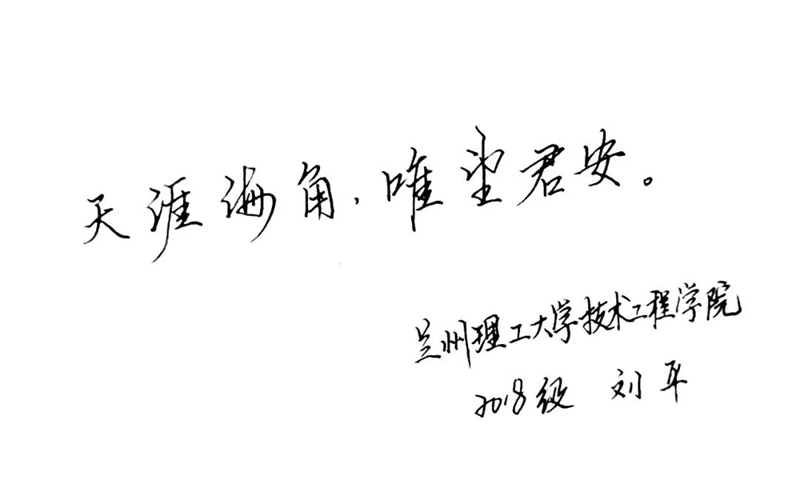 天涯海角，唯望君安。
兰州理工大学技术工程学院
2018级 刘平